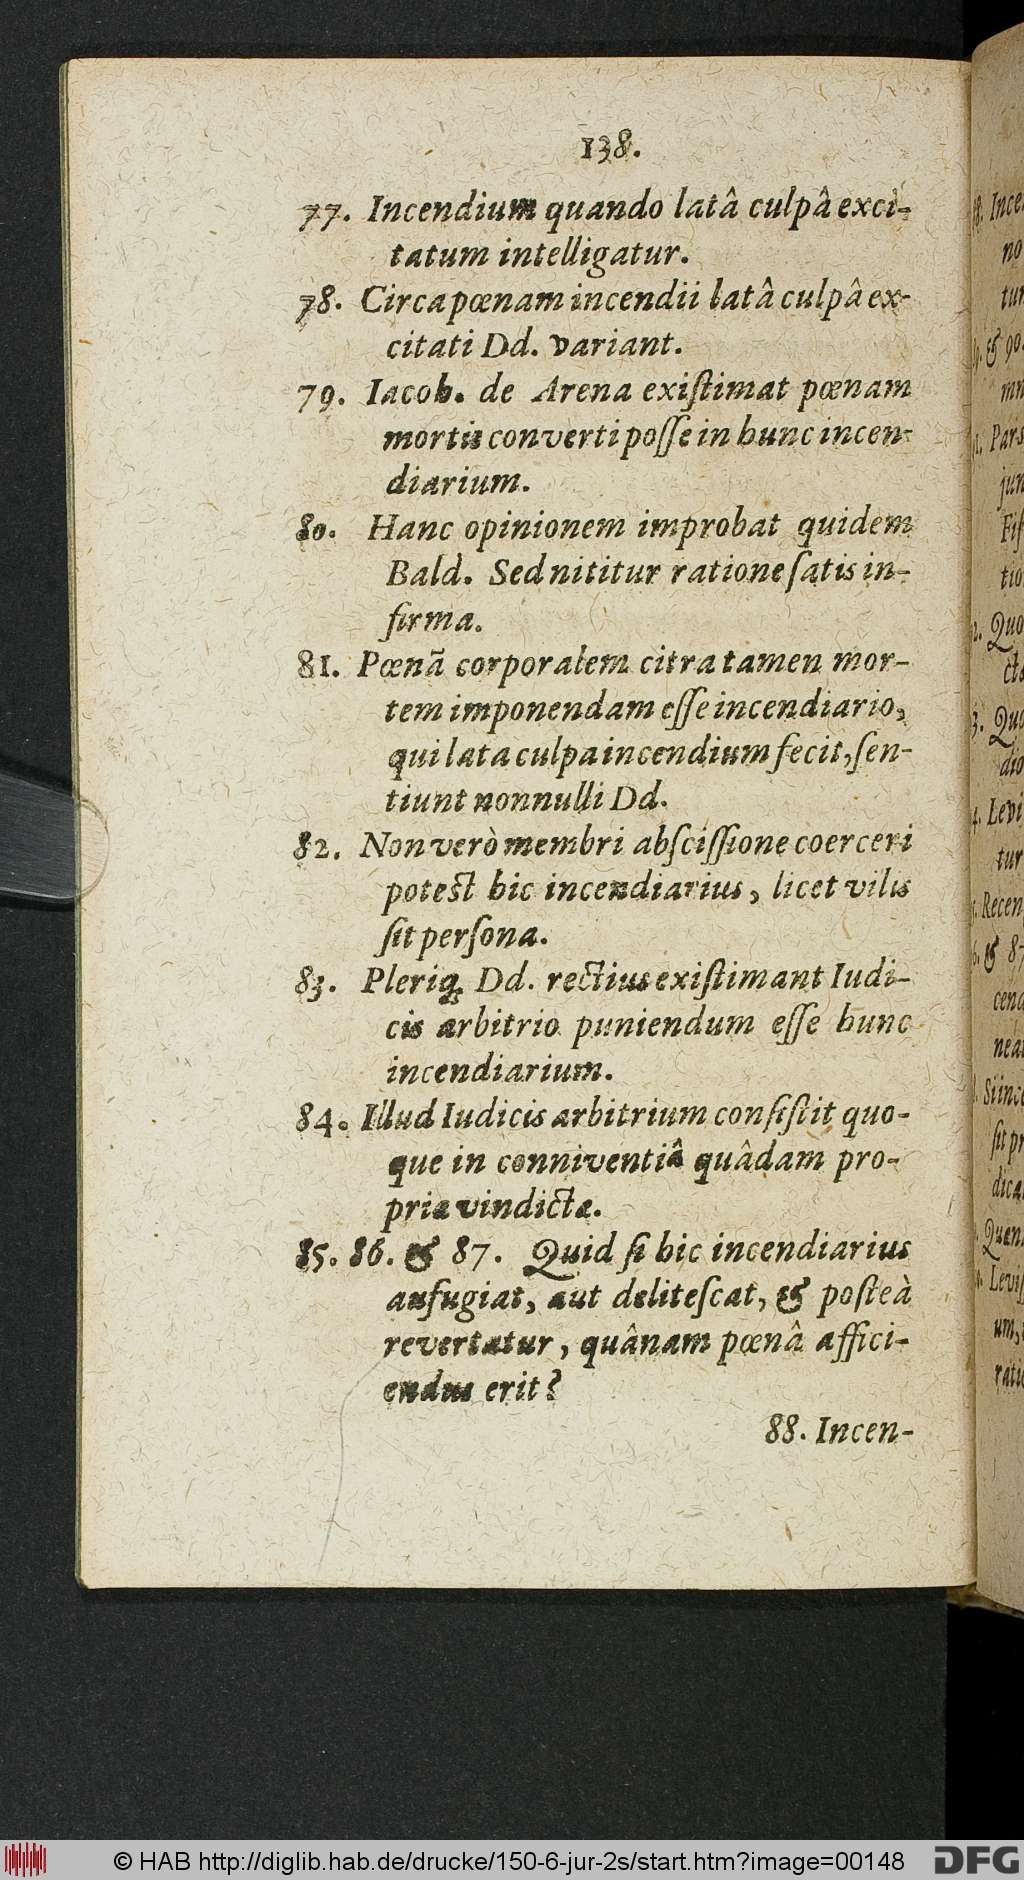 138.
77. Incendium quando latâ culpâ exci-
tatum intelligatur.
78. Circa pœnam incendii latâ culpâ ex-
citati Dd. variant.
79. Iacob. de Arena exiſtimat pœnam
mortis converti poſſe in hunc incen-
diarium.
80. Hanc opinionem improbat quidem
Bald. Sed nititur ratione ſatis in-
firma.
81. Pœnã corporalem citra tamen mor-
tem imponendam eſſe incendiario,
qui lata culpa incendium fecit, ſen-
tiunt nonnulli Dd.
82. Non verò membri abſciſſione coerceri
poteſt hic incendiarius, licet vilis
ſit perſona.
83. Pleriq; Dd. rectius exiſtimant Iudi-
cis arbitrio puniendum eſſe hunc
incendiarium.
84. Illud Iudicis arbitrium conſiſtit quo-
que in conniventiâ quâdam pro-
priæ vindictæ.
85. 86. & 87. Quid ſi hic incendiarius
aufugiat, aut deliteſcat, & poſteà
revertatur, quânam pœnâ affici-
endus erit?
88. Incen-
Ince
no
tur
& 90.
Pars
jun
Fiſ
tio
Quo
Levi
tur
Recen
& 87
cend
neat
Si ince
ſit pr
dica
Leviſ
um,
ratio
© HAB http://diglib.hab.de/drucke/150-6-jur-2s/start.htm?image=00148
DFG